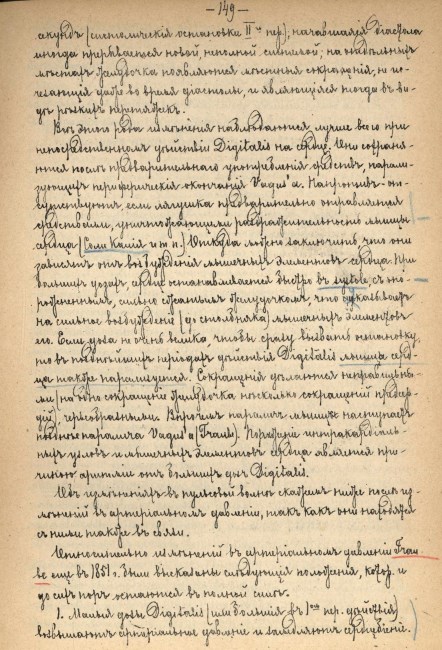 — 149 —
секундъ (систолическія остановки II-го пер.); начавшаяся діастола
иногда прерывается новой, неполной систолой; на отдѣльныхъ
мѣстахъ желудочка появляются мѣстныя сокращенія, не ис-
чезающія даже во время діастолы, и являющіяся иногда въ ви-
дѣ рѣзкихъ перетяжекъ.
Всѣ этого рода измѣненія наблюдаются лучше всего при
непосредственномъ дѣйствіи Digitalis на сердце. Они сохраня-
ются послѣ предварительнаго употребленія средствъ, парали-
зующихъ периферическія окончанія Vagus'а. Напротивъ — от-
сутствуютъ, если лягушка предварительно отравляется
средствами, уничтожающими раздражительность мышцы
сердца (Соли Калія и т. п.) Отсюда можно заключить, что они
зависятъ отъ возбужденія мышечныхъ элементовъ сердца. При
большихъ дозахъ, сердце останавливается быстро въ systole, съ опо-
рожненнымъ, сильно сжатымъ желудочкомъ, что указываетъ
на сильное возбужденіе (до столбняка) мышечныхъ элементовъ
его. Если доза не очень велика, чтобы сразу вызвать остановку,
то въ позднѣйшихъ періодахъ дѣйствія Digitalis мышца серд-
ца также парализуется. Сокращенія дѣлаются неправильны-
ми (на одно сокращеніе желудочка нѣсколько сокращеній предсер-
дій), червеобразными. Впрочемъ параличъ мышцы наступаетъ
позднѣе паралича Vagus'а (Traube). Пораженіе интракардіаль-
ныхъ узловъ и мышечныхъ элементовъ сердца является при-
чиною аритміи отъ большихъ дозъ Digitalis.
Объ измѣненіяхъ въ пульсовой волнѣ скажемъ ниже послѣ из-
мѣненій въ артеріальномъ давленіи, такъ какъ они находятся
съ ними также въ связи.
Относительно измѣненій въ артеріальномъ давленіи Trau-
be еще въ 1851 г. были высказаны слѣдующія положенія, котор. и
до сихъ поръ остаются въ полной силѣ.
1. Малыя дозы Digitalis (или большія въ 1-омъ пер. дѣйствія)
возвышаютъ артеріальное давленіе и замедляютъ сердцебіеніе.